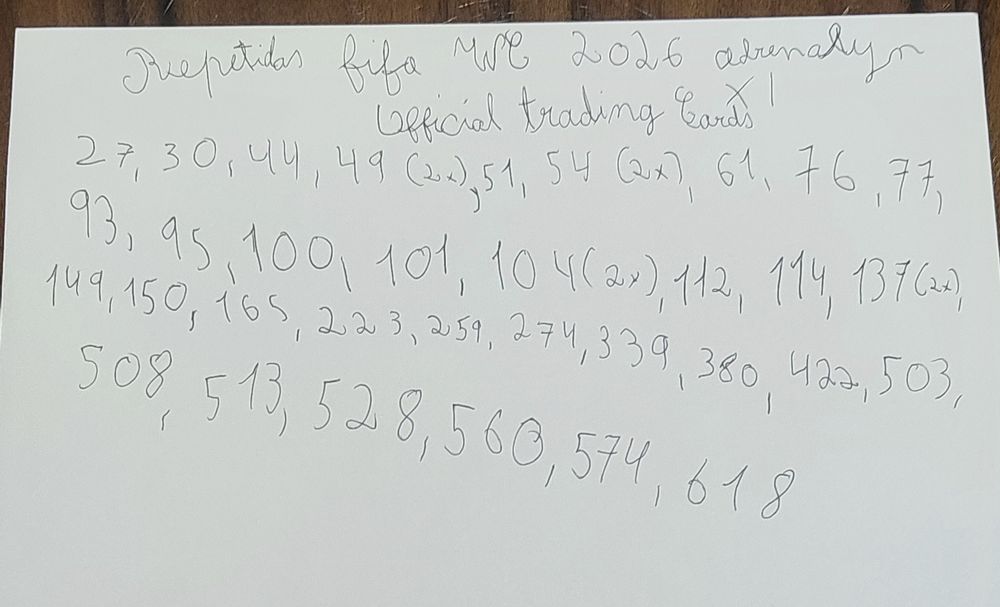 Repetidas fifa WC 2026 adrenalyn
XL
Official trading Cards
27, 30, 44, 49 (2x), 51, 54 (2x), 61, 76, 77,
93, 95, 100, 101, 104 (2x), 112, 114, 137 (2x),
149, 150, 165, 223, 259, 274, 339, 380, 422, 503,
508, 513, 528, 560, 574, 618